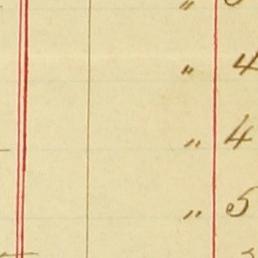 "
" 4
" 4
" 5